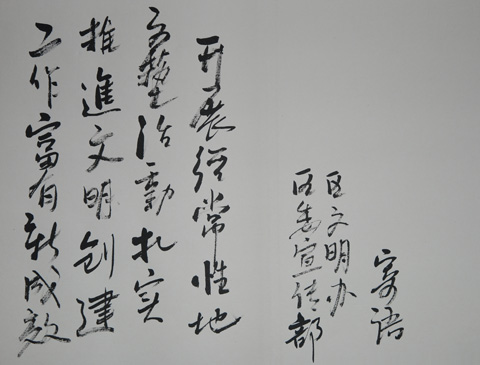 寄语
区文明办
区委宣传部
开展经常性地
文藝活動扎实
推進文明创建
工作富有新成效